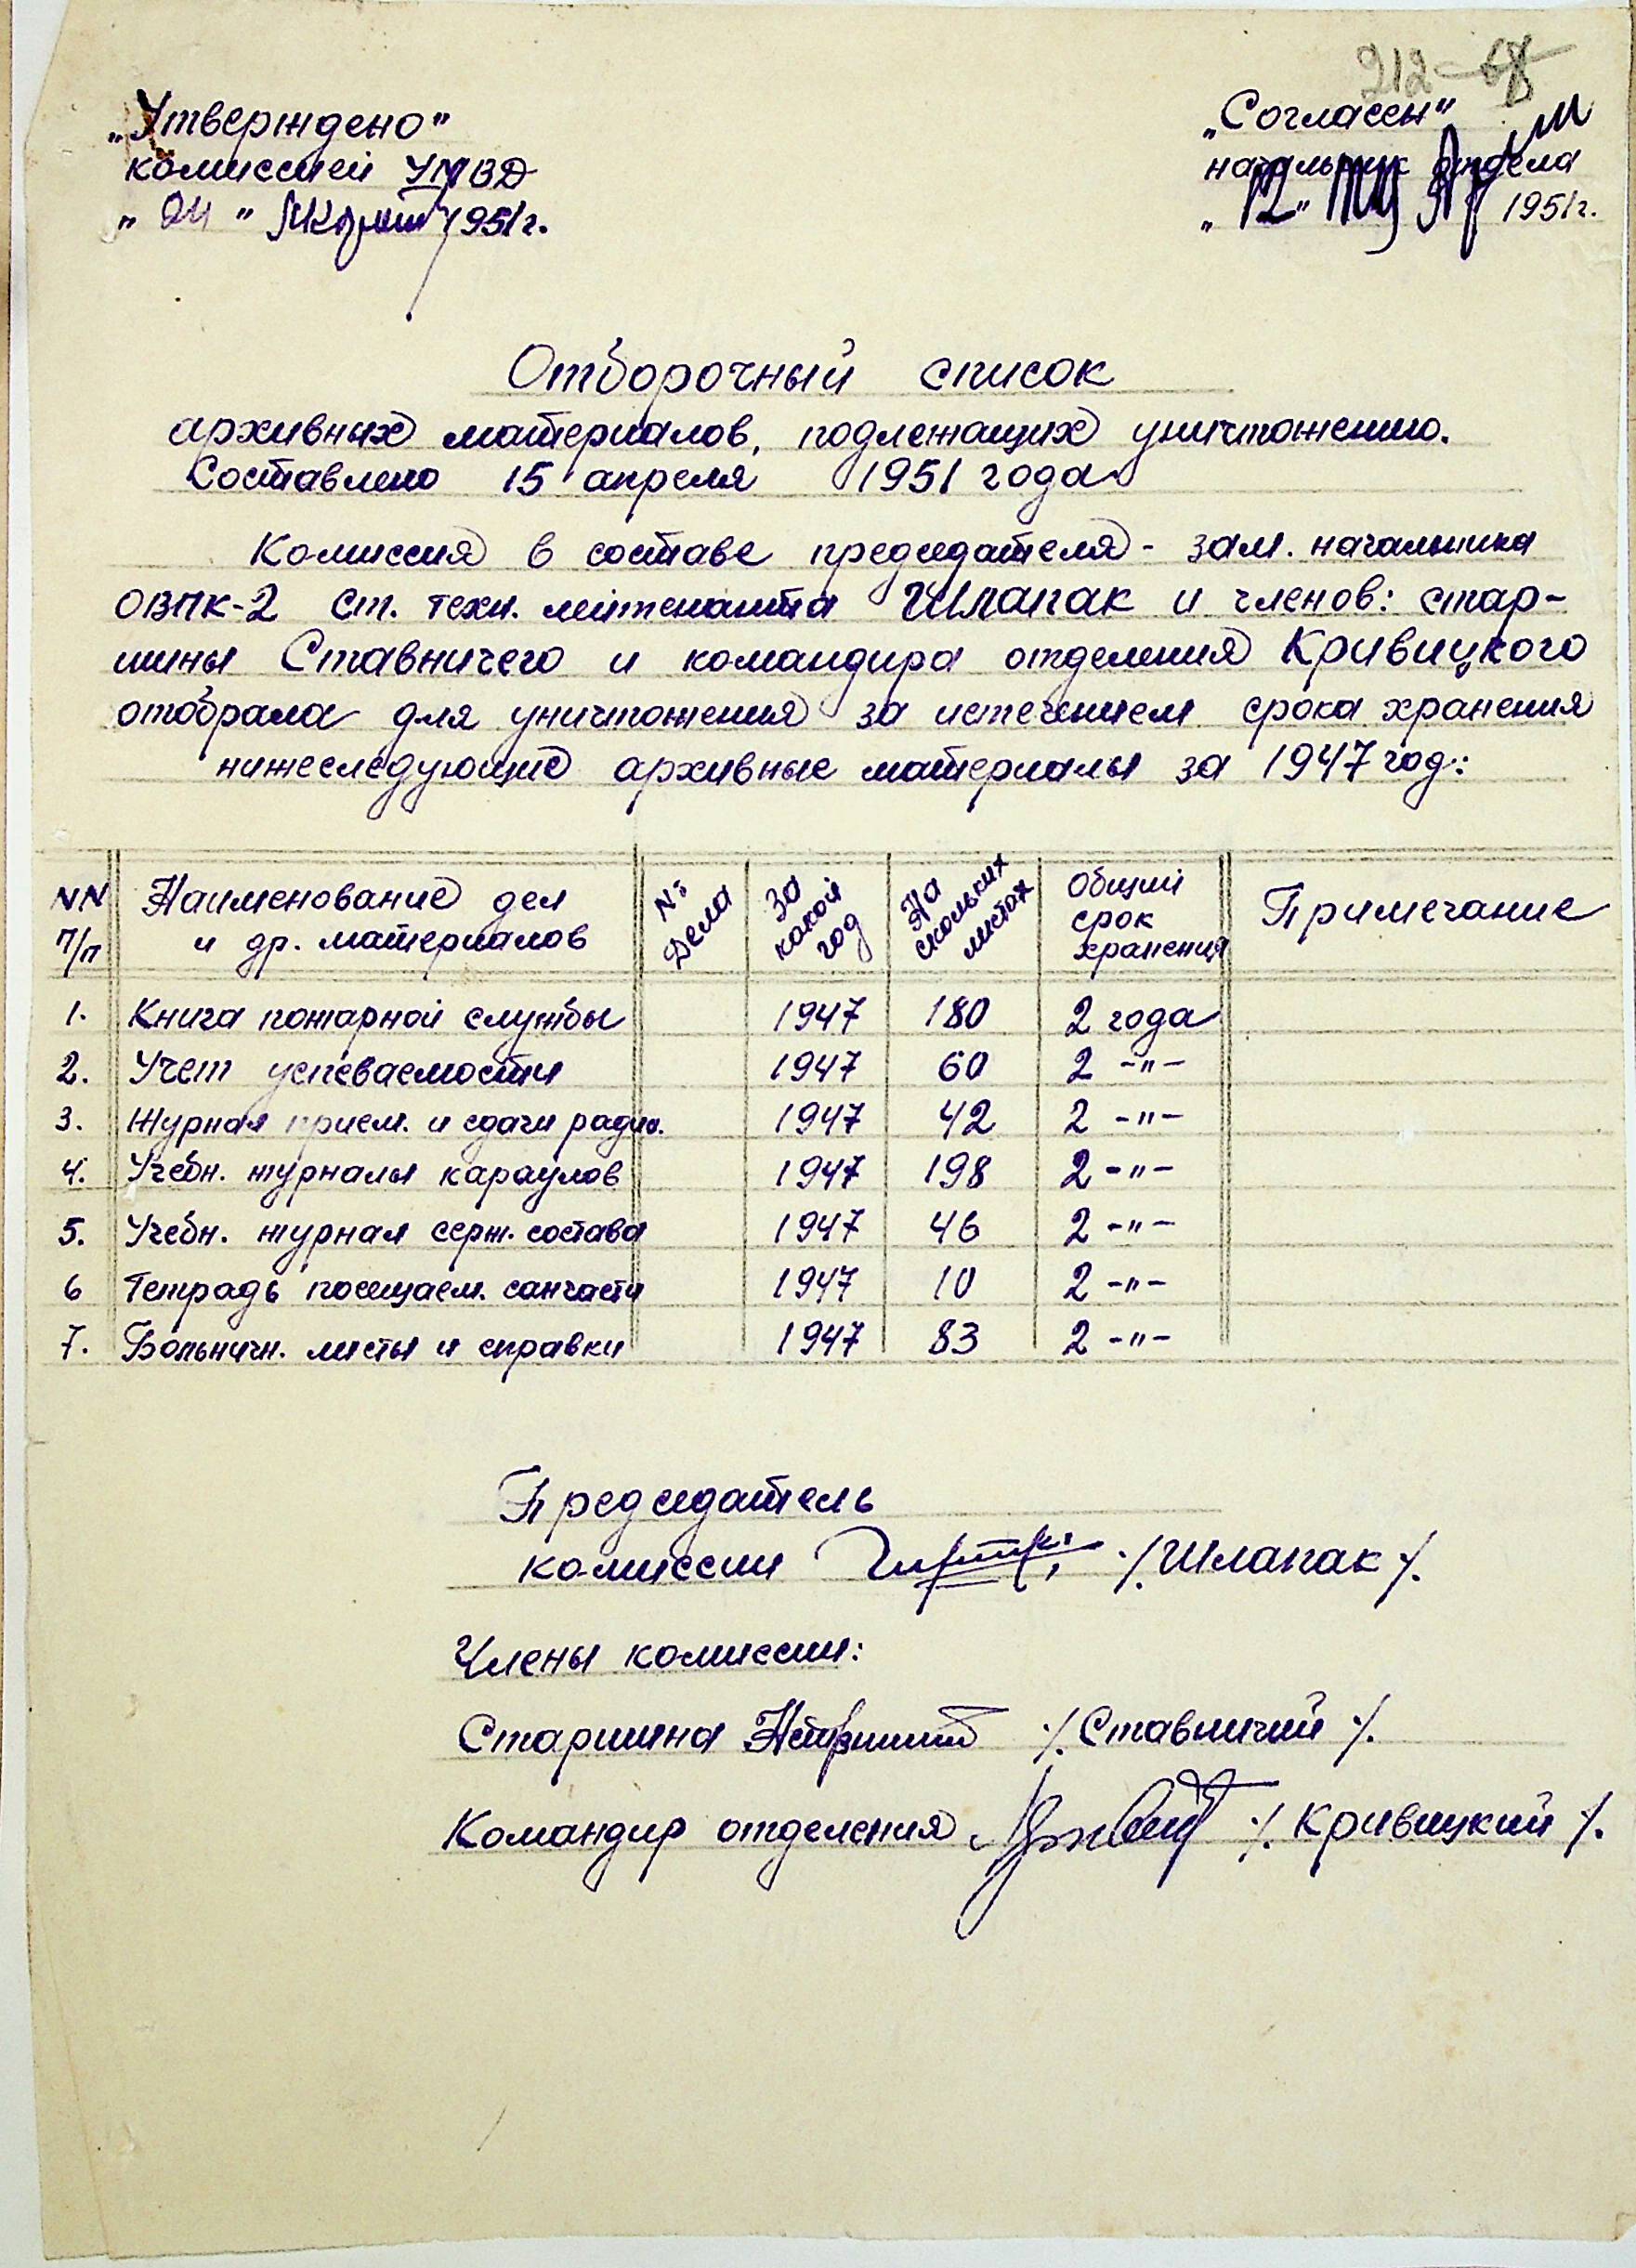 212
„Утверждено"
комиссией УМВД
„ 24 " 1951г.
„Согласен"
начальник отдела
„12" 1951г.
Отборочный список
архивных материалов, подлежащих уничтожению.
Составлено 15 апреля 1951 года
Комиссия в составе председателя - зам. начальника
ОВПК-2 ст. техн. лейтенанта Шлапак и членов: стар-
шины Ставничего и командира отделения Кривицкого
отобрала для уничтожения за истечением срока хранения
нижеследующие архивные материалы за 1947 год:
NN п/п Наименование дел и др. материалов № дела За какой год На скольких листах Общий срок хранения Примечание
1. Книга пожарной службы 1947 180 2 года
2. Учет успеваемости 1947 60 2 -"-
3. Журнал прием. и сдачи радио. 1947 42 2 -"-
4. Учебн. журналы караулов 1947 198 2 -"-
5. Учебн. журнал серж. состава 1947 46 2 -"-
6 Тетрадь посещаем. санчасти 1947 10 2 -"-
7. Больничн. листы и справки 1947 83 2 -"-
Председатель
комиссии ./. Шлапак ./.
Члены комиссии:
Старшина ./. Ставничий ./.
Командир отделения ./. Кривицкий ./.